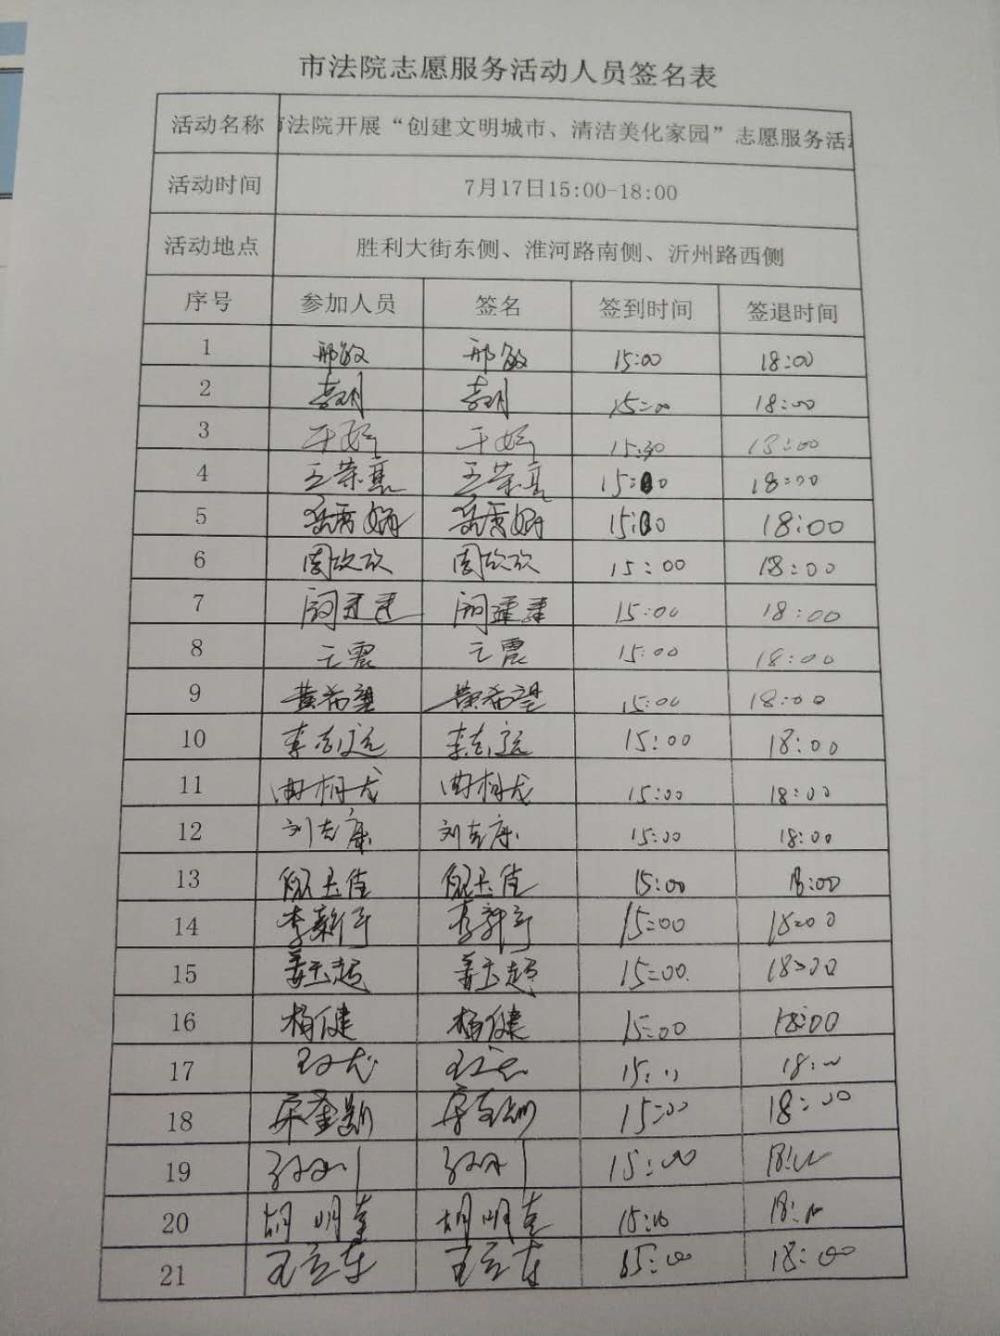 市法院志愿服务活动人员签名表
活动名称 市法院开展“创建文明城市、清洁美化家园”志愿服务活动
活动时间 7月17日15:00-18:00
活动地点 胜利大街东侧、淮河路南侧、沂州路西侧
序号 参加人员 签名 签到时间 签退时间
1 邢敏 邢敏 15:00 18:00
2 李玥 李玥 15:00 18:00
3 15:30 18:00
4 王荣亮 王荣亮 15:00 18:00
5 15:00 18:00
6 周欣欣 周欣欣 15:00 18:00
7 15:00 18:00
8 王震 王震 15:00 18:00
9 黄希望 黄希望 15:00 18:00
10 李志远 李志远 15:00 18:00
11 曲相龙 曲相龙 15:00 18:00
12 刘志康 刘志康 15:00 18:00
13 倪玉佳 倪玉佳 15:00 18:00
14 15:00 18:00
15 姜玉超 姜玉超 15:00 18:00
16 杨健 杨健 15:00 18:00
17 15:00 18:00
18 15:00 18:00
19 15:00 18:00
20 胡明奎 胡明奎 15:00 18:00
21 王立东 王立东 15:00 18:00